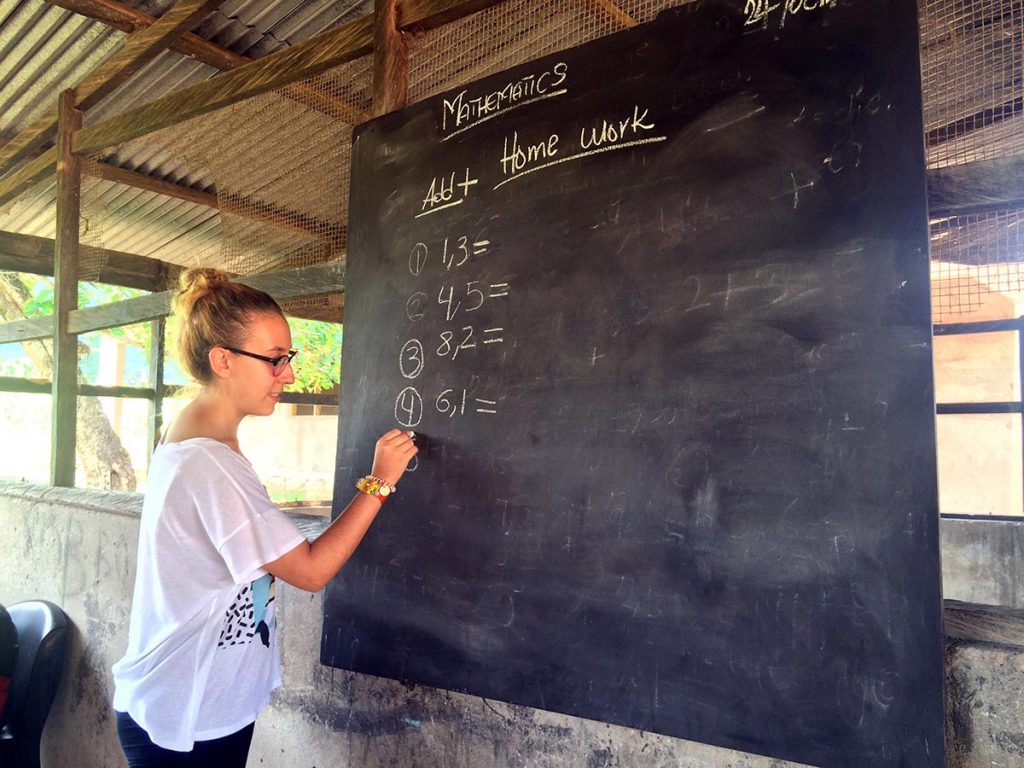 MATHEMATICS
Home work
Add +
① 1,3=
② 4,5=
③ 8,2=
④ 6,1=